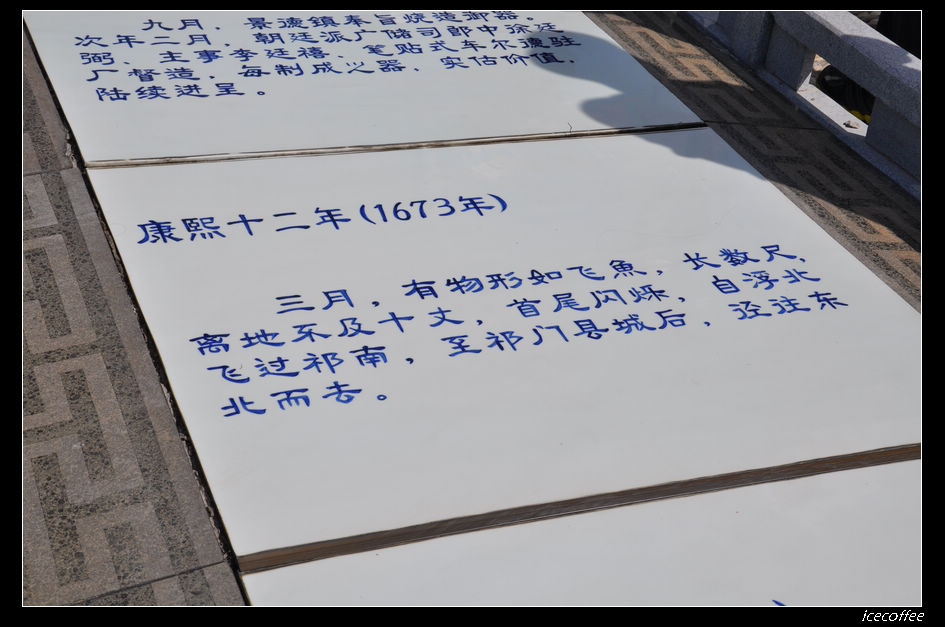 九月，景德鎮奉旨烧造御器。
次年二月，朝廷派广储司郎中徐廷
弼、主事李廷禧、笔贴式车尔德驻
厂督造，每制成必器，实估价值，
陆续进呈。
康熙十二年(1673年)
三月，有物形如飞魚，长数尺，
离地不及十丈，首尾闪烁，自浮北
飞过祁南，至祁门县城后，迳往东
北而去。
icecoffee